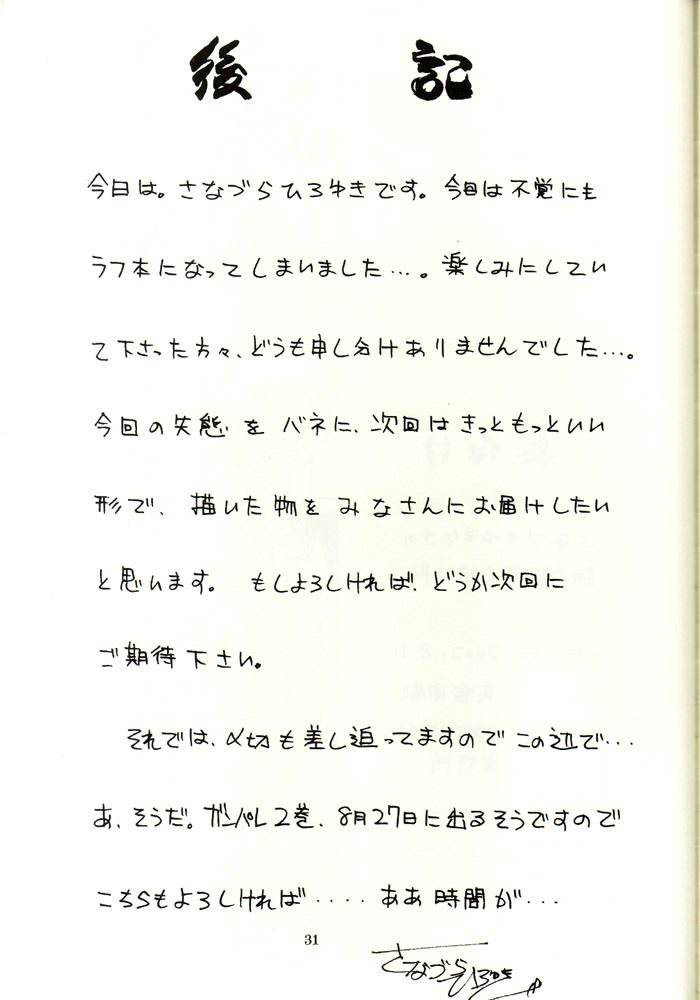 後記
今日は。さなづらひろゆきです。今回は不覚にも
ラフ本になってしまいました…。楽しみにしてい
て下さった方々、どうも申し分けありませんでした…。
今回の失態をバネに、次回はきっともっといい
形で、描いた物をみなさんにお届けしたい
と思います。 もしよろしければ、どうか次回に
ご期待下さい。
それでは、〆切も差し迫ってますのでこの辺で…
あ、そうだ。ガンパレ2巻、8月27日に出るそうですので
こちらもよろしければ‥‥ ああ時間が…
31
さなづらひろゆき